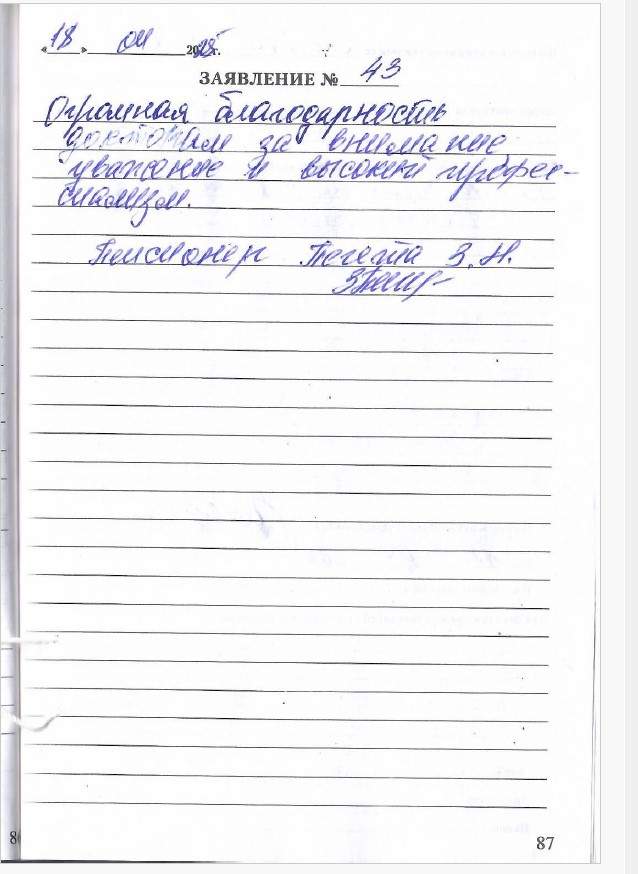 «18» 04 2025г.
ЗАЯВЛЕНИЕ № 43
Огромная благодарность
докторам за внимание,
уважение и высокий профес-
сионализм.
Пенсионер З. Н.
87